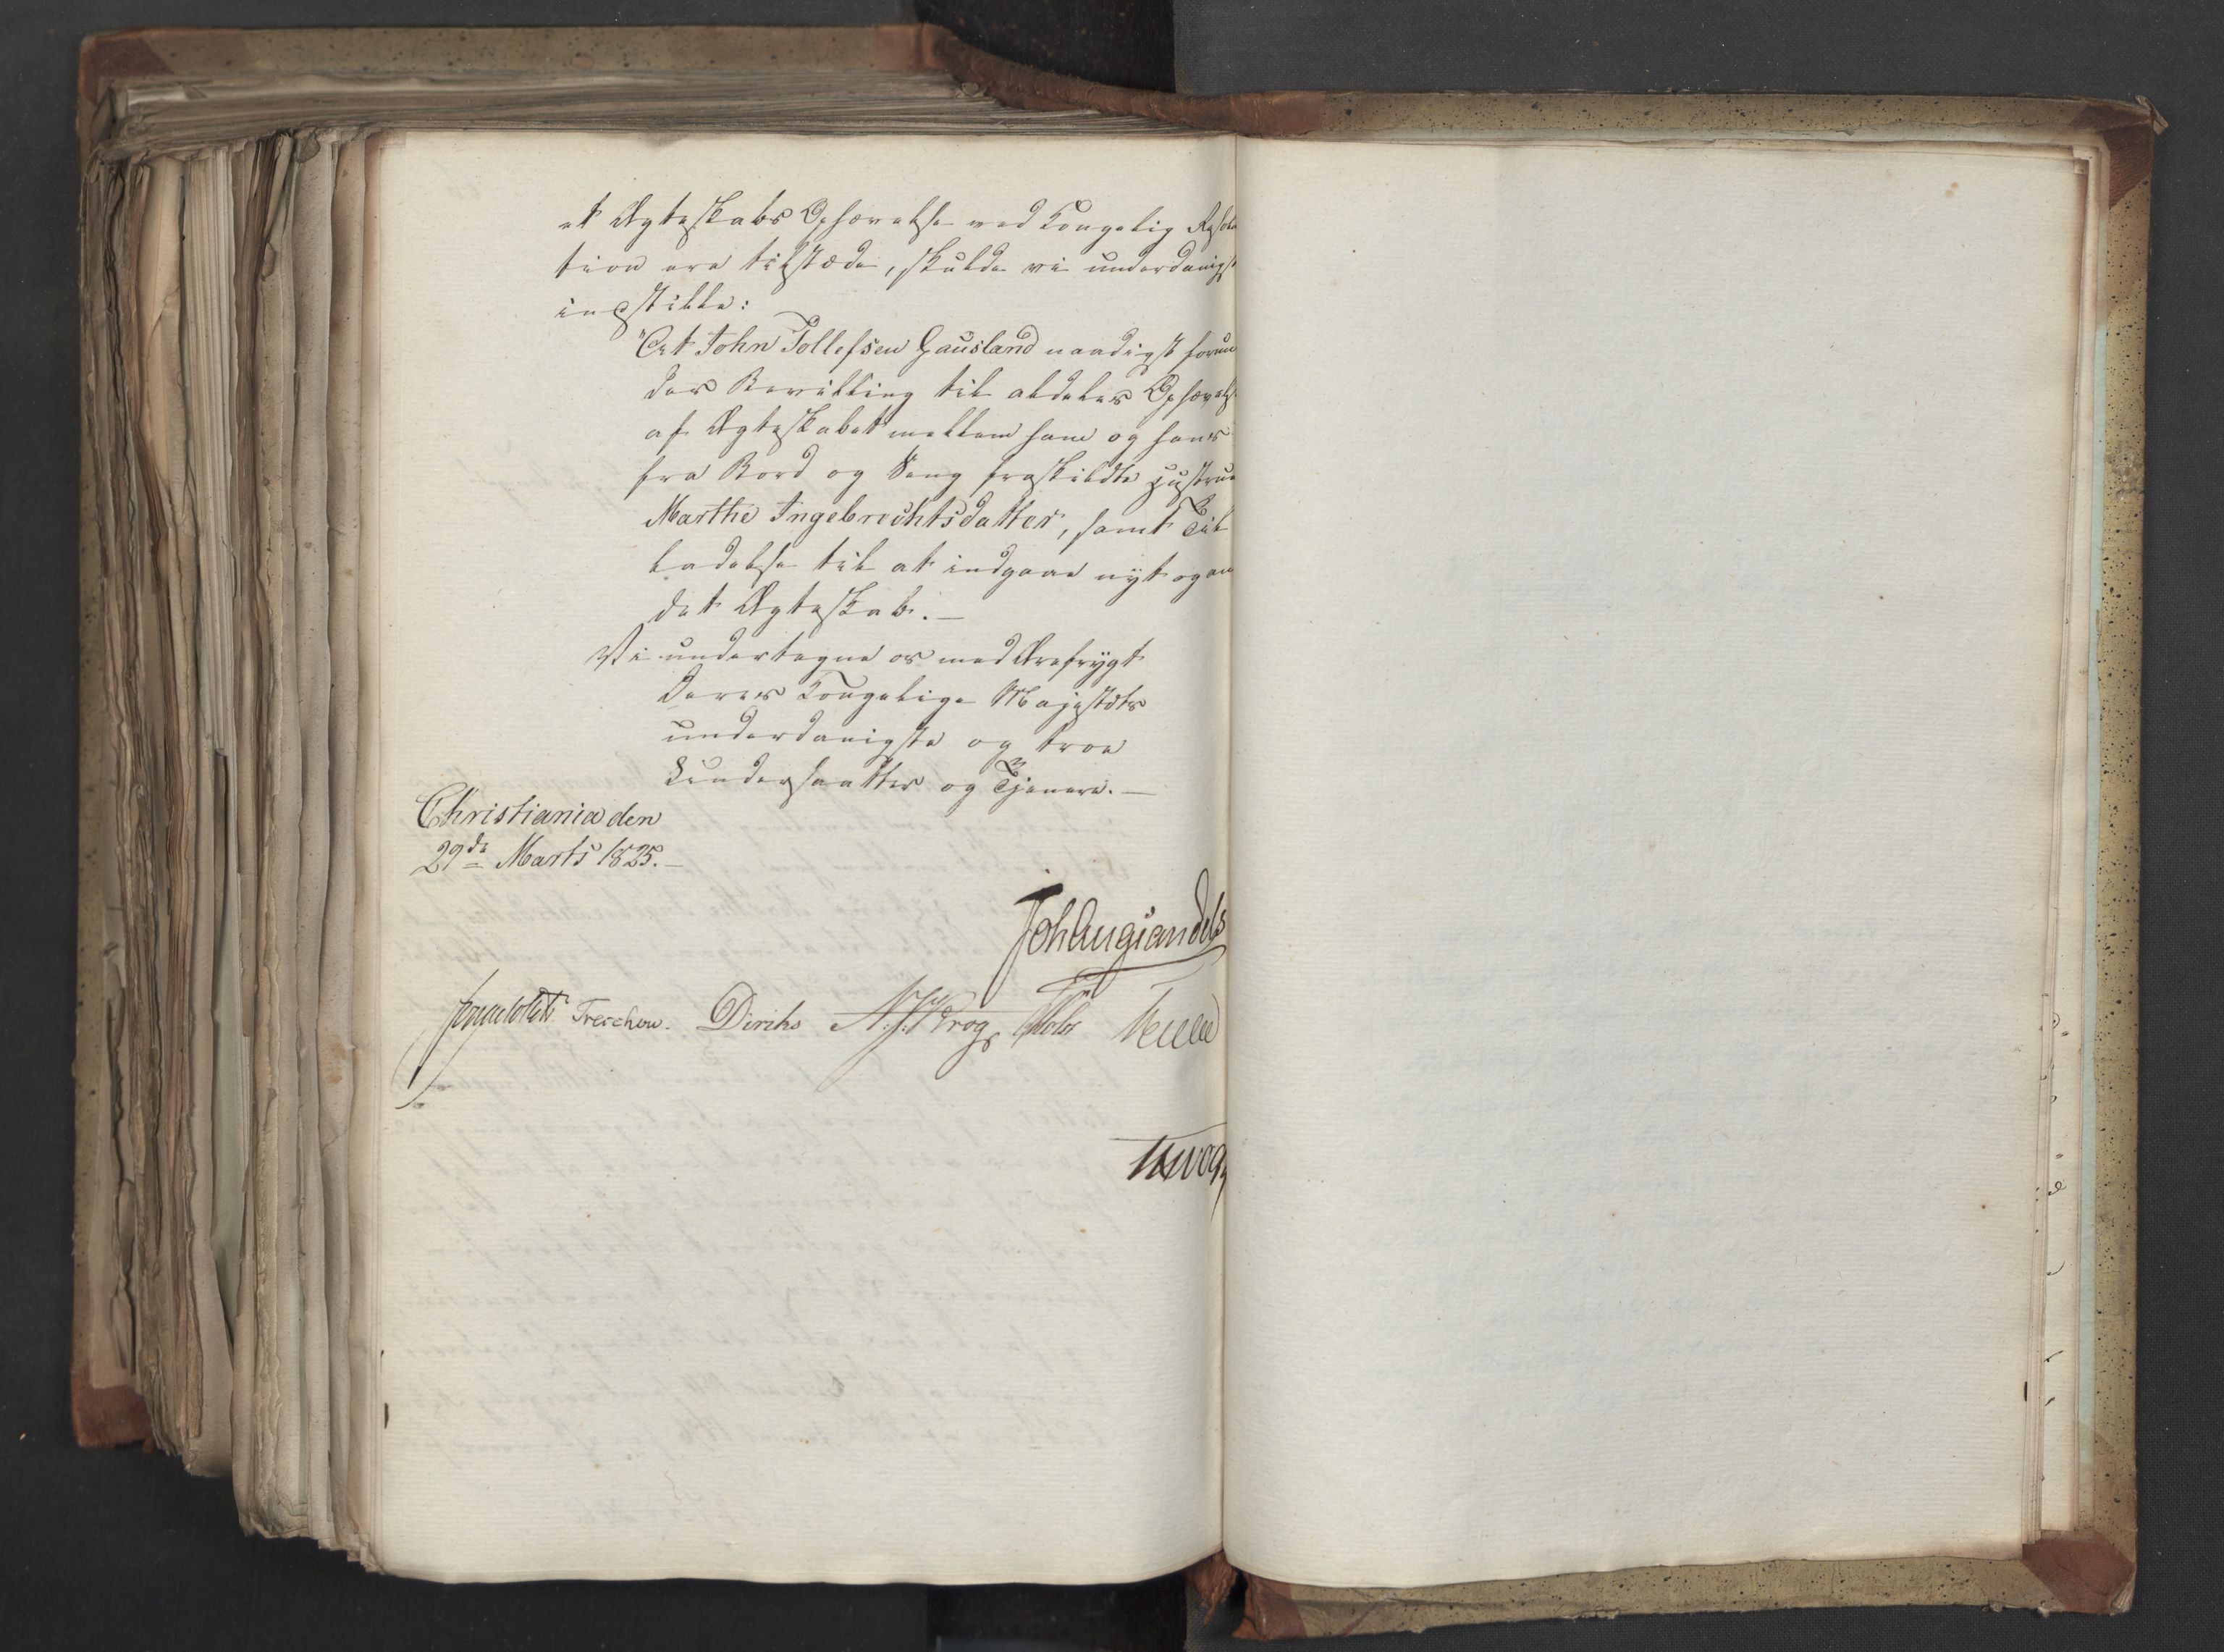 et Ægteskabs Ophævelse ved Kongelig Resolu
tion ere tilstæde, skulde vi underdanigst
indstille:
"At John Tollefsen Gausland naadigst forun
des Bevilling til aldeles Ophævelse
af Ægteskabet mellem ham og hans
fra Bord og Seng fraskildte Hustrue
Marthe Ingebrechtsdatter, samt Til
ladelse til at indgaae nyt og an
det Ægteskab. —
Vi undertegne os med Ærefrygt
Deres Kongelige Majestæts
underdanigste og troe
Undersaatter og Tjenere. —
Christiania den
29de Marts 1825. —
Joh Aug Sandels
Sommerhielm Treschow. Diriks N.J. Krog